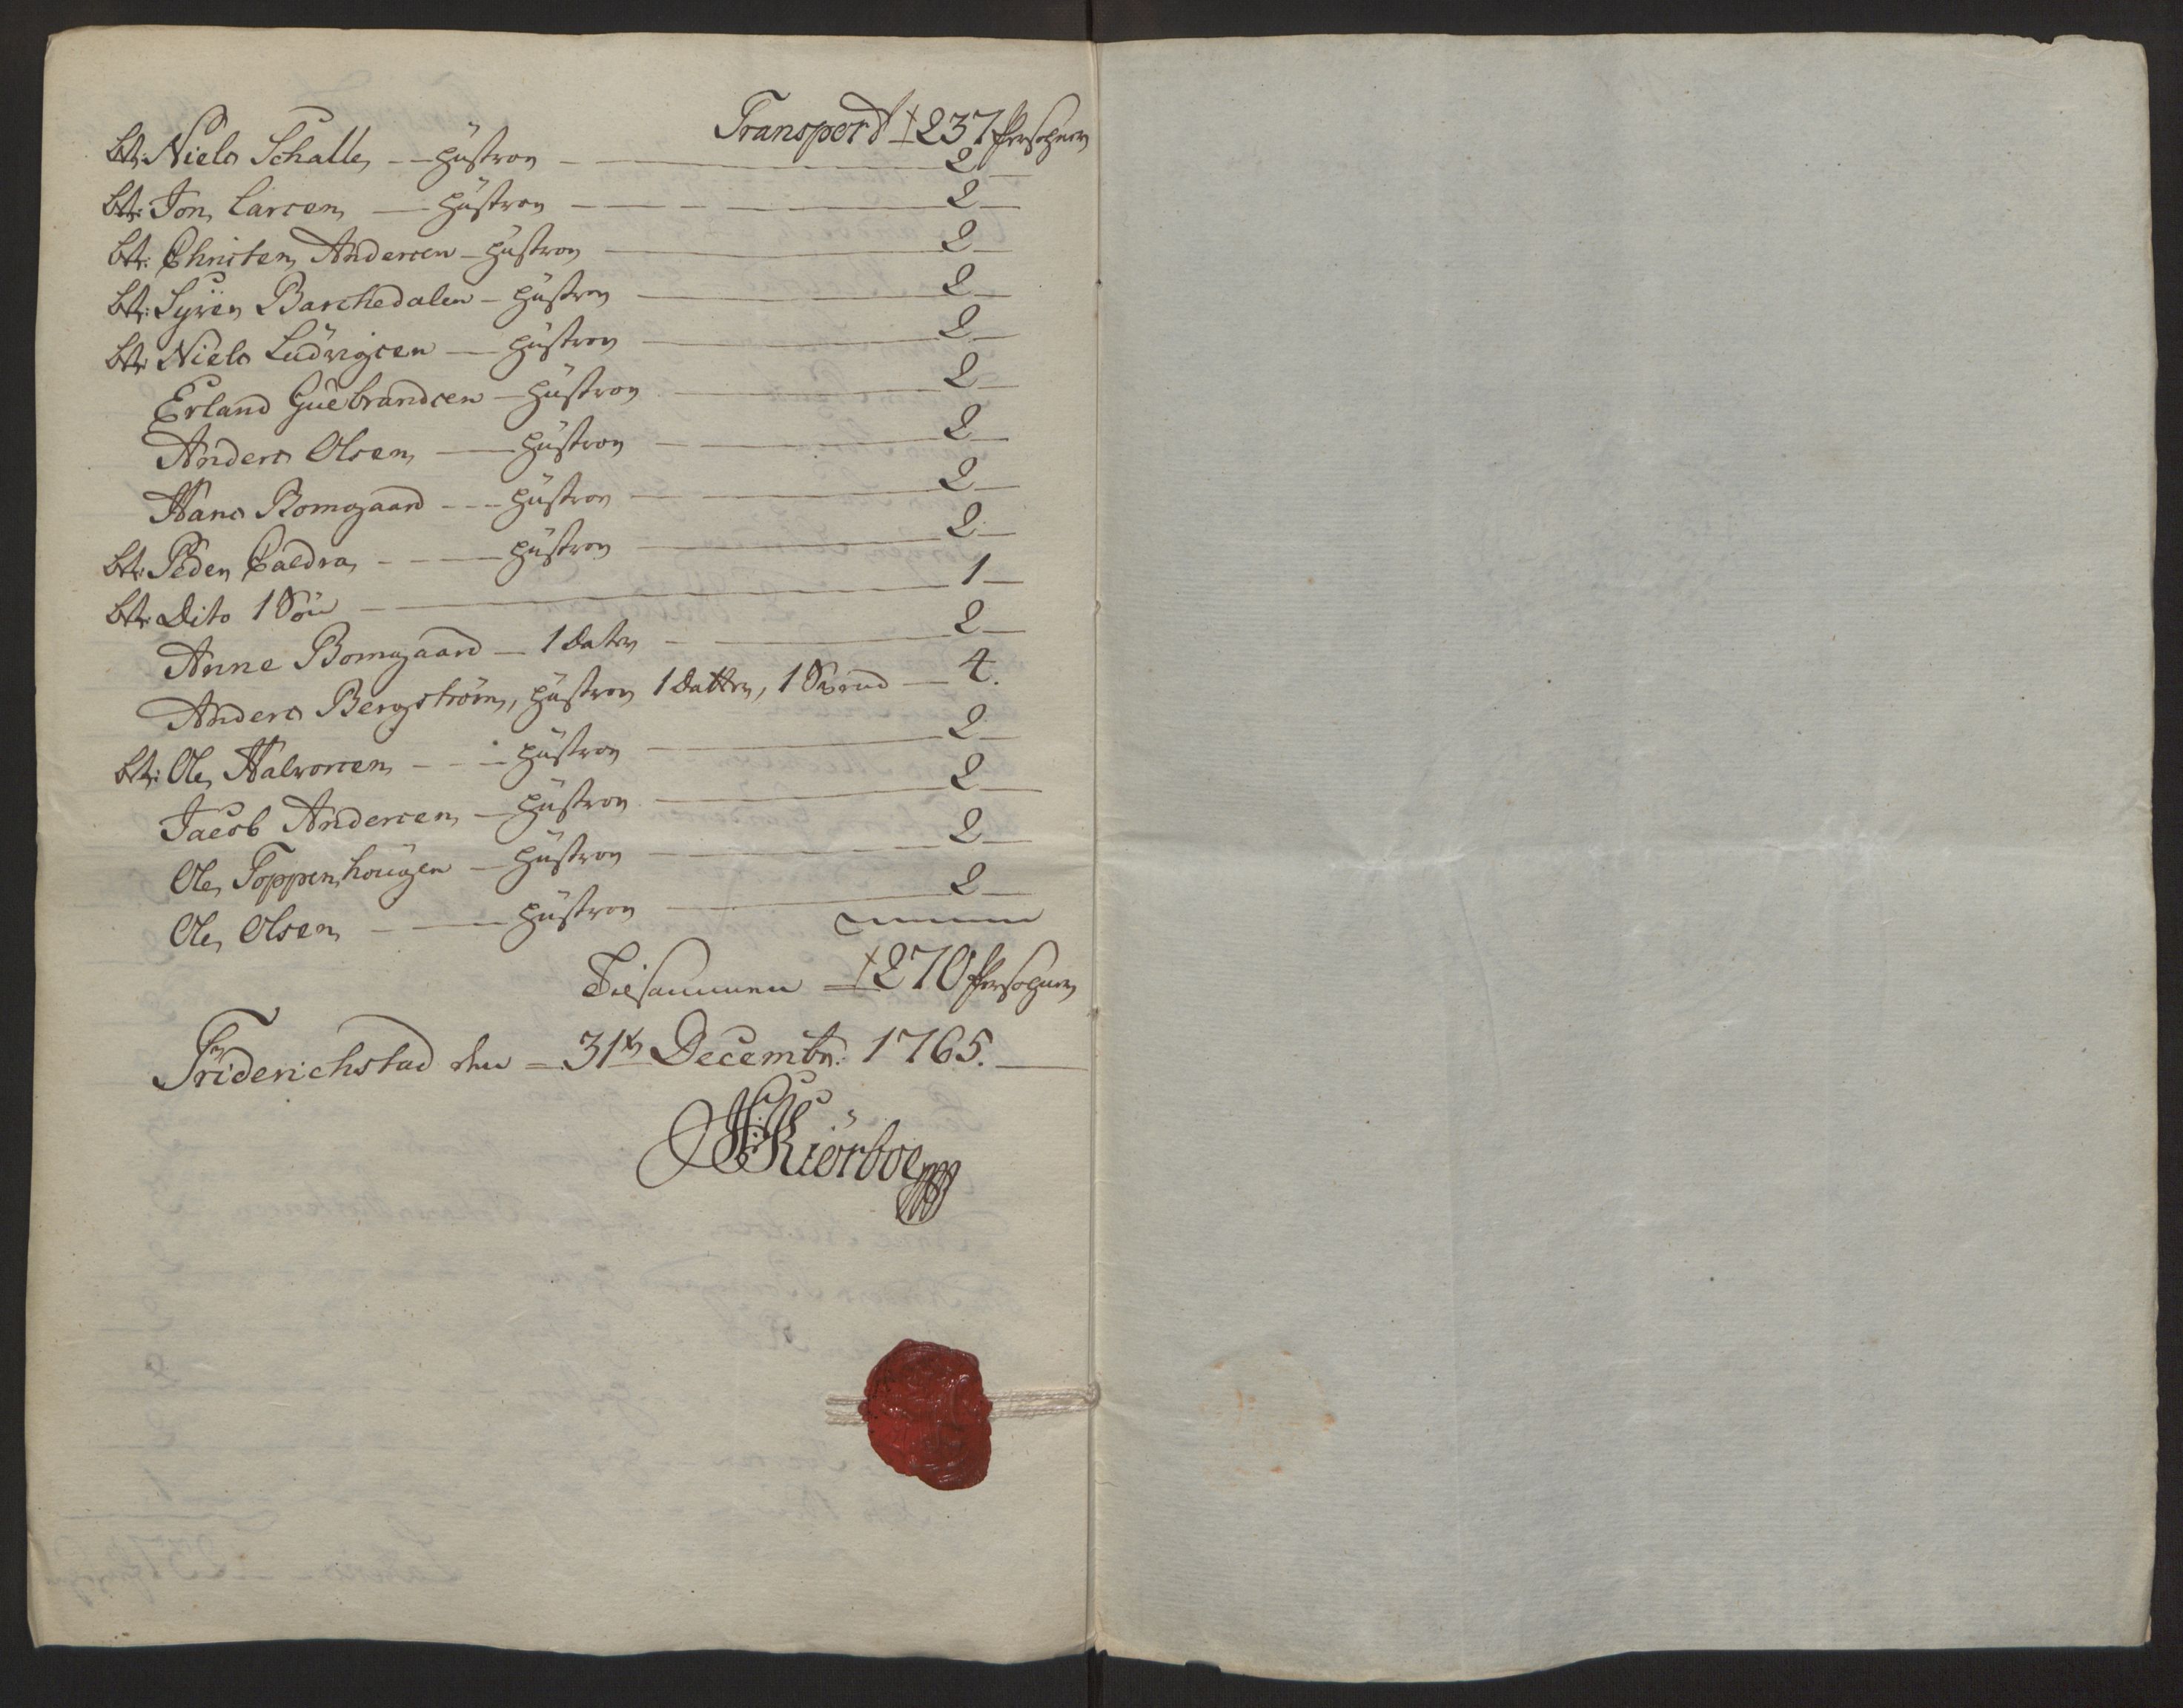 Transport † 237 Persohner
btr: Niels Schalle, — Hustroe — 2
btr: Jon Larsen — Hustroe — 2
btr: Christen Andersen — Hustroe — 2
btr: Syver Barchedalen — Hustroe — 2
btr: Niels Ludvigsen — Hustroe — 2
Erland Guebrandsen — Hustroe — 2
Anders Olsen — Hustroe — 2
Hans Bomgaard — Hustroe — 2
btr: Peder — Hustroe — 2
btr: Dito 1 Søn — 1
Anne Bomgaard — 1 Dater — 2
Anders Bergstrøm, Hustroe 1 Datter, 1 Svend — 4.
btr: Ole Halvorsen — Hustroe — 2
Jacob Andersen — Hustroe — 2
Ole Toppenhougen — Hustroe — 2
Ole Olsen — Hustroe — 2
Tilsammen † 270 Persohner
Friderichstad den 31te Decembr: 1765.
Kiørboe